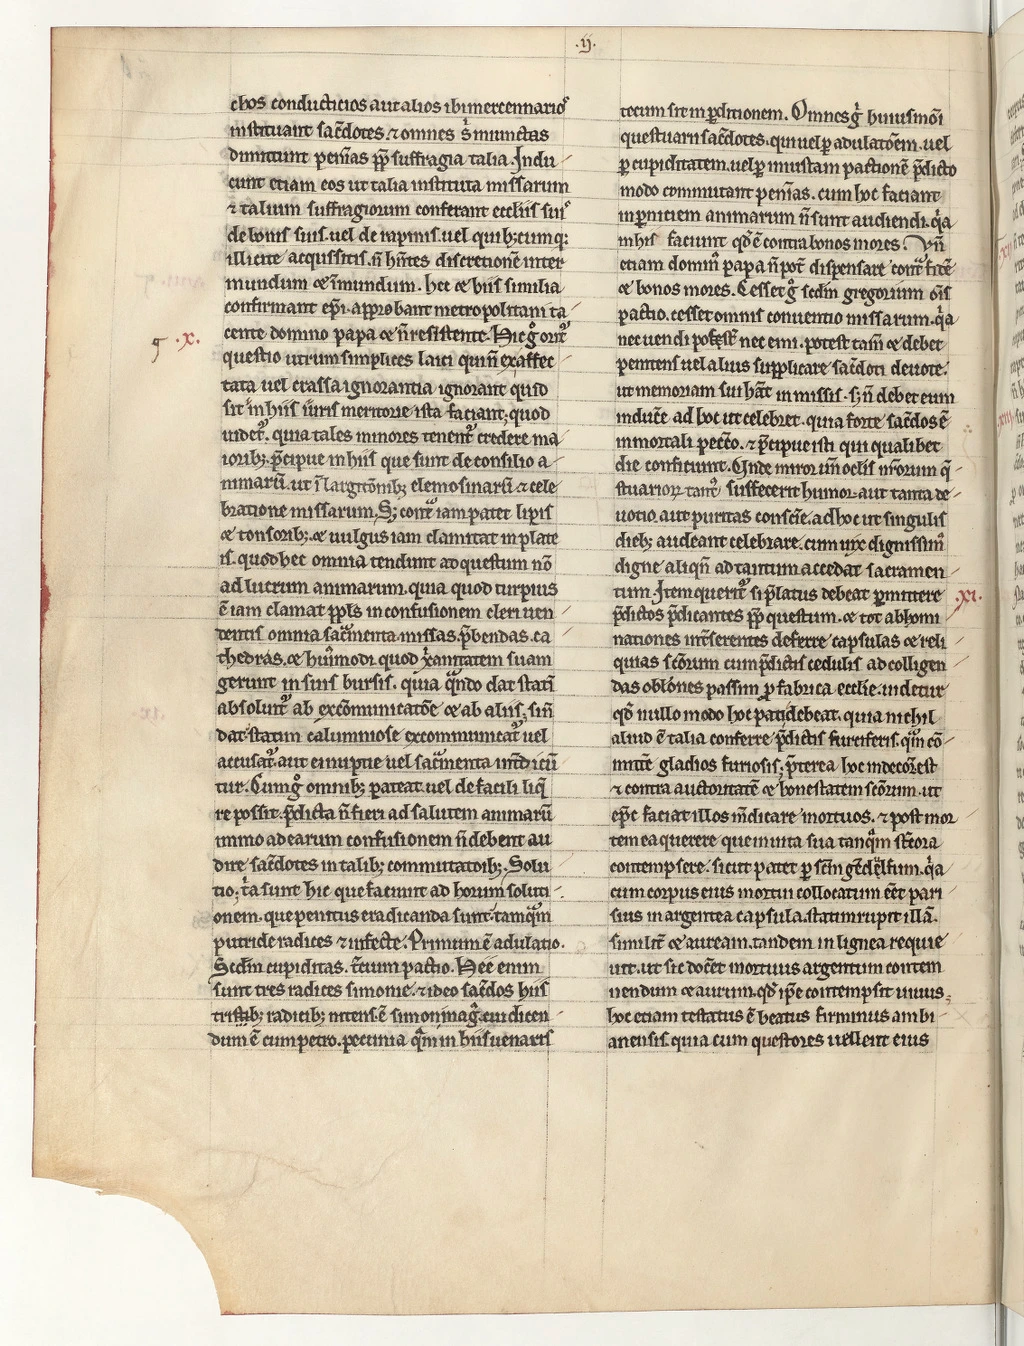 .ij.
chos conducticios aut alios ibi mercennario⁹
instituant sac̄dotes. ⁊ omnes s̄ iniunctas
dimittunt penīas ꝓp̄ suffragia talia. Indu
cunt etiam eos ut talia instituta missarum
⁊ talium suffragiorum conferant eccl̄iis sui⁹
de bonis suis. uel de rapinis. uel quibꝫcumqꝫ
illicite acquisitis. n̄ hn̄tes discretionē inter
mundum ⁊ īmundum. hec ⁊ hiis similia
confirmant ep̄i. approbant metropolitani ta
cente domino papa ⁊ n̄ resistente. Hic gͦ orit᷑
.x.
questio utrum simplices laici qui n̄ ex affec
tata uel crassa ignorantia ignorant quid
sit in hiis iuris meritorie ista faciant; quod
uidet᷑. quia tales minores tenent᷑ credere ma
ioribꝫ. p̄cipue in hiis que sunt de consilio a
nimarū. ut ī largitōnibꝫ elemosinarū ⁊ cele
bratione missarum. Sꝫ cont̄ iam patet lippis
⁊ tonsoribꝫ. ⁊ uulgus iam clamitat in plate
is. quod hec omnia tendunt ad questum nō
ad lucrum animarum. quia quod turpius
ē iam clamat ppl̄s in confusionem cleri uen
dentis omnia sac̄menta missas. p̄bendas. ca
thedras. ⁊ hui᷒modi. quod x̄anitatem suam
gerunt in suis bursis. quia qn̄do dat statī
absoluit᷑ ab excōmunicatōe ⁊ ab aliis, si n̄
dat statim calumniose excommunicat᷑ uel
accusat᷑. aut ei nuptie uel sac̄menta int̄dicū
tur. Cum gͦ omnibꝫ pateat. uel de facili liq̄
re possit. p̄dicta n̄ fieri ad salutem animarū
immo ad earum confusionem n̄ debent au
dire sac̄dotes in talibꝫ commutatōibꝫ. Solu
tio. t̄a sunt hic que faciunt ad horum soluti
onem. que penitus eradicanda sunt. tamqͣm
putride radices ⁊ infecte. Primum ē adulatio.
Secdm̄ cupiditas. t̄cium pactio. Hee enim
sunt tres radices simonie. ⁊ ideo sac̄dos hiis
tribꝫ radicibꝫ intens᷒ ē simon mag᷒. cui dicen
dum ē cum petro. pecunia qͣm in hiis uenaris
tecum sit in p̄ditionem. Omnes gͦ huiusmōi
questuarii sac̄dotes. qui uel ꝑ adulatōem. uel
ꝑ cupiditatem. uel ꝑ iniustam pactionē p̄dicto
modo commutant penīas. cum hoc faciant
in ꝑniciem animarum n̄ sunt audiendi. qͥa
in hiis faciunt qd̄ ē contra bonos mores. Vn̄
etiam domin᷒ papa n̄ pot̄ dispensare contͣ fidē
⁊ bonos mores. Cesset gͦ scdm̄ gregorium oīs
pactio. cesset omnis conuentio missarum. qͥa
nec uendi possunt nec emi. potest tam̄ ⁊ debet
penitens uel alius supplicare sac̄doti deuote.
ut memoriam sui hāt in missis. sꝫ n̄ debet eum
induc̄e ad hoc ut celebret. quia forte sac̄dos ē
in mortali pecc̄o. ⁊ p̄cipue isti qui qualibet
die conficiunt. Unde miror un̄ oclīs nr̄orum q̄
stuarioꝝ tant᷒ suffecerit humor. aut tanta de
uotio. aut puritas consciē. ad hoc ut singulis
diebꝫ audeant celebrare. cum uix dignissim᷒
digne aliqn̄ ad tantum accedat sacramen
tum. Item querit᷑ si p̄latus debeat ꝑmittere
.xi.
p̄dictos p̄dicantes ꝓp̄ questum. ⁊ tot abhomi
nationes int̄serentes deferre capsulas ⁊ reli
quias sc̄orum cum p̄dictis cedulis ad colligen
das oblōnes passim ꝓ fabrica ecclīe. uidetur
qd̄ nullo modo hoc pati debeat. quia nichil
aliud ē talia conferre p̄dictis furciferis. qͣm cō
mitt̄e gladios furiosis; p̄terea hoc indecōr est
⁊ contra auctoritatē ⁊ honestatem sc̄orum. ut
ep̄c faciat illos īndicare mortuos. ⁊ post mor
tem ea querere que in uita sua tanqͣm st̄cora
contempsere. sicut patet ꝑ sc̄m
cum corpus eius mortui collocatum eēt pari
sius in argentea capsula. statim rupit illā.
similit̄ ⁊ auream. tandem in lignea requie
uit. ut sic docēt mortuus argentum contem
nendum ⁊ aurum. qd̄ ip̄e contempsit uiuus,
hoc etiam testatus ē beatus firminus ambi
anensis. quia cum questores uellent eius